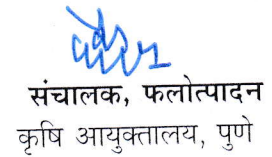 संचालक, फलोत्पादन
कृषि आयुक्तालय, पुणे